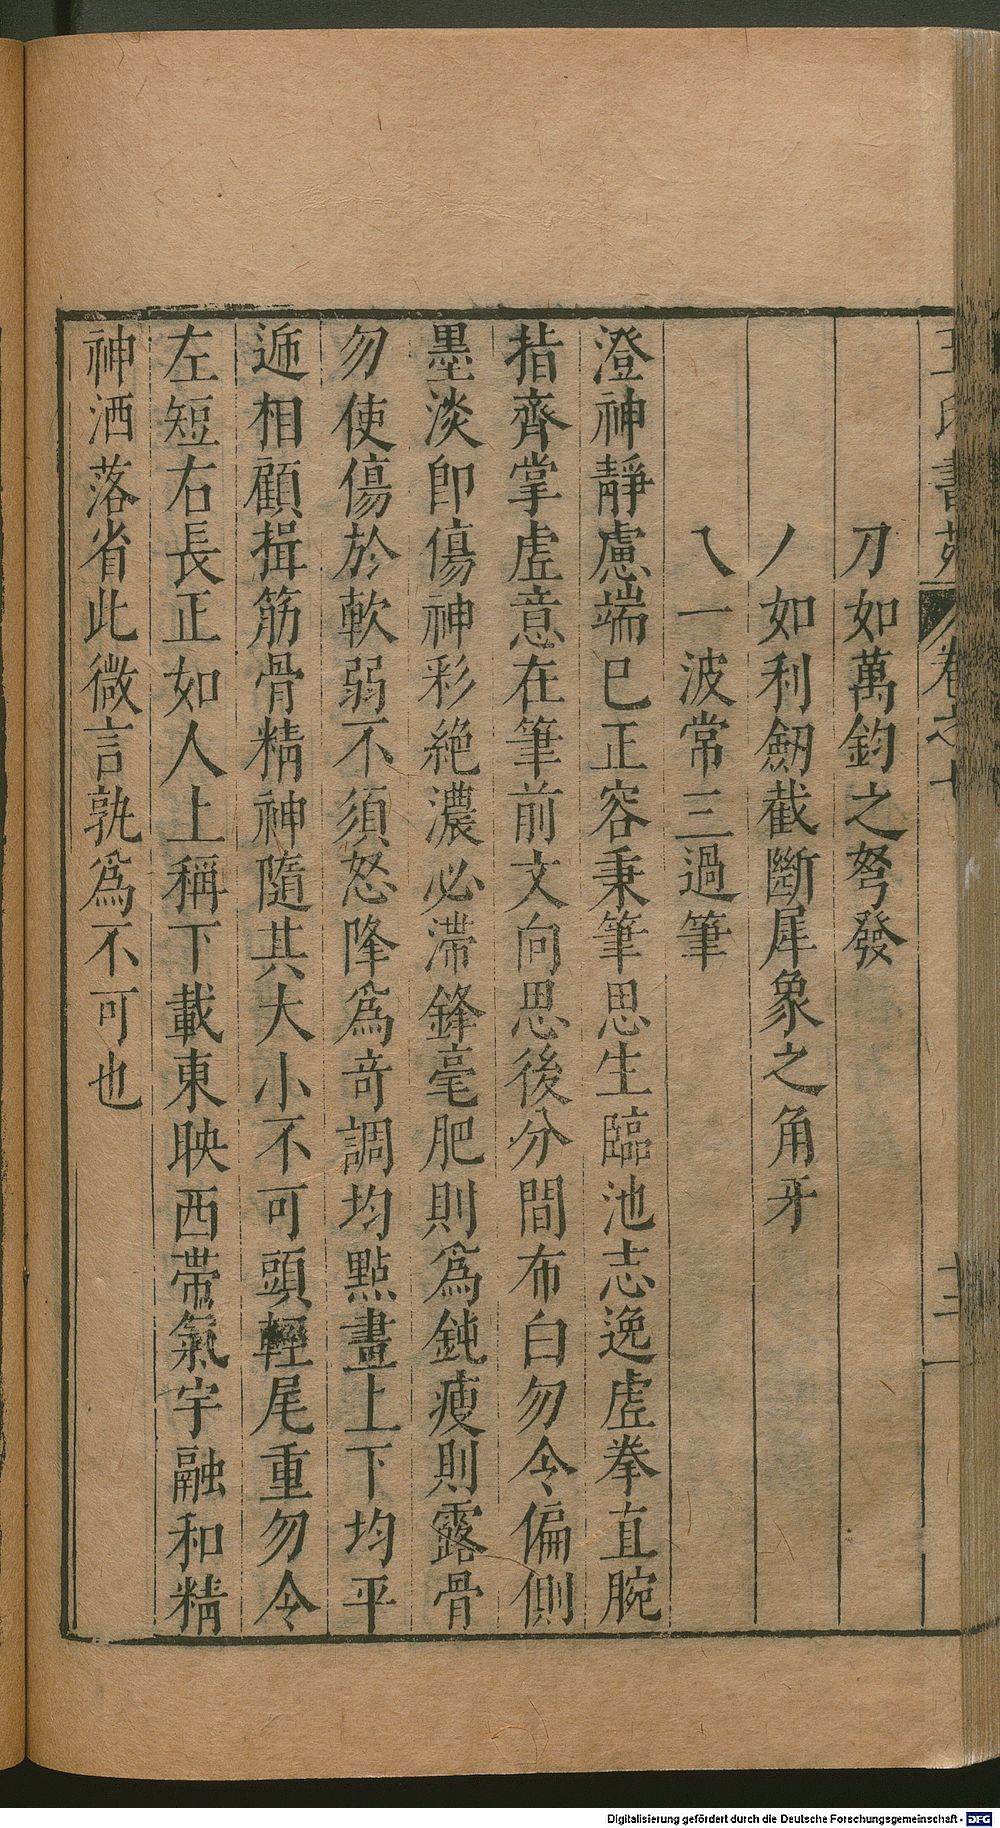 王氏書苑 卷之七 十三
刀如萬鈞之弩發
丿如利劒截斷犀象之角牙
乀一波常三過筆
澄神靜慮端已正容秉筆思生臨池志逸虛拳直腕
指齊掌虛意在筆前文向思後分間布白勿令偏側
墨淡卽傷神彩絕濃必滯鋒毫肥則爲鈍瘦則露骨
勿使傷於軟弱不須怒降爲奇調均點畫上下均平
遞相顧揖筋骨精神隨其大小不可頭輕尾重勿令
左短右長正如人上稱下載東映西帶氣宇融和精
神洒落省此微言孰爲不可也
Digitalisierung gefördert durch die Deutsche Forschungsgemeinschaft - DFG